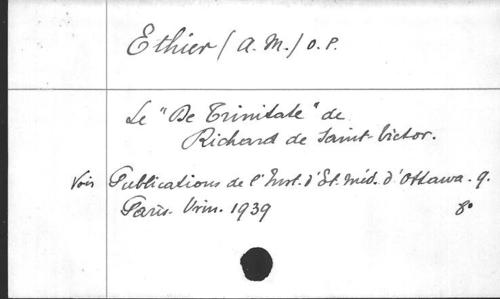 Ethier (A.M.) O.P.
Le "De Trinitate" de
Richard de Saint-Victor.
Voir Publications de l'Inst. d'Et. Méd. d'Ottawa. 9.
Paris. Vrin. 1939 8°